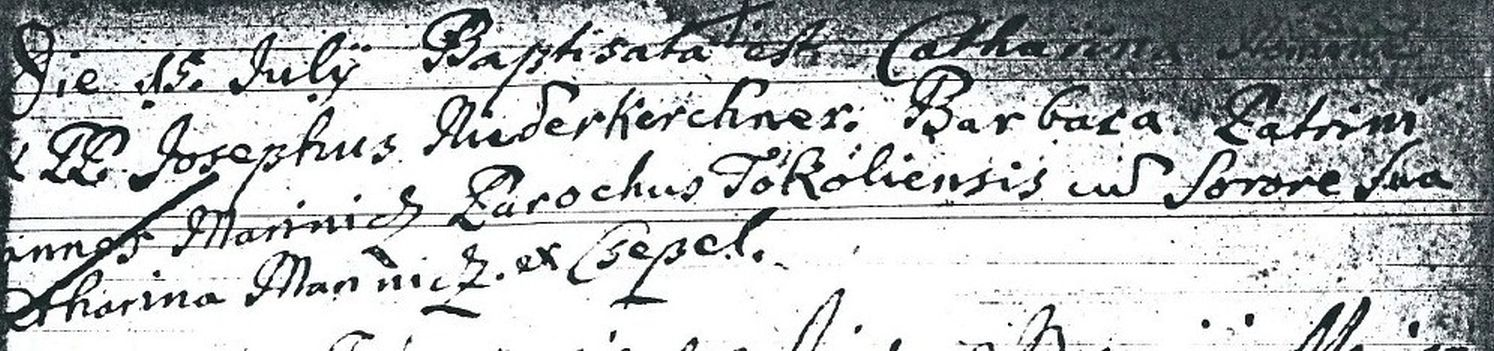 Die 15. Julÿ Baptisata est Catharina Nomine
PP. Josephus Niederkerchner. Barbara. Patrini
annes Marinich Parochus Tököliensis cum Sorore Sua
atharina Marinich. ex Csepel.